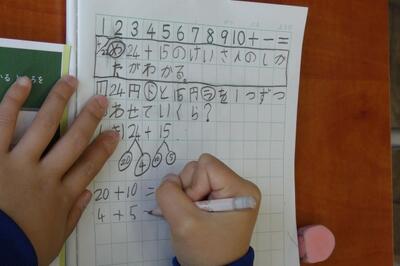 1 2 3 4 5 6 7 8 9 10 + − =
め 24+15のけいさんのしか
たがわかる。
1 24円トと15円ラを1つずつ
あわせていくら?
24+15
20 4 10 5
20+10=
4+5